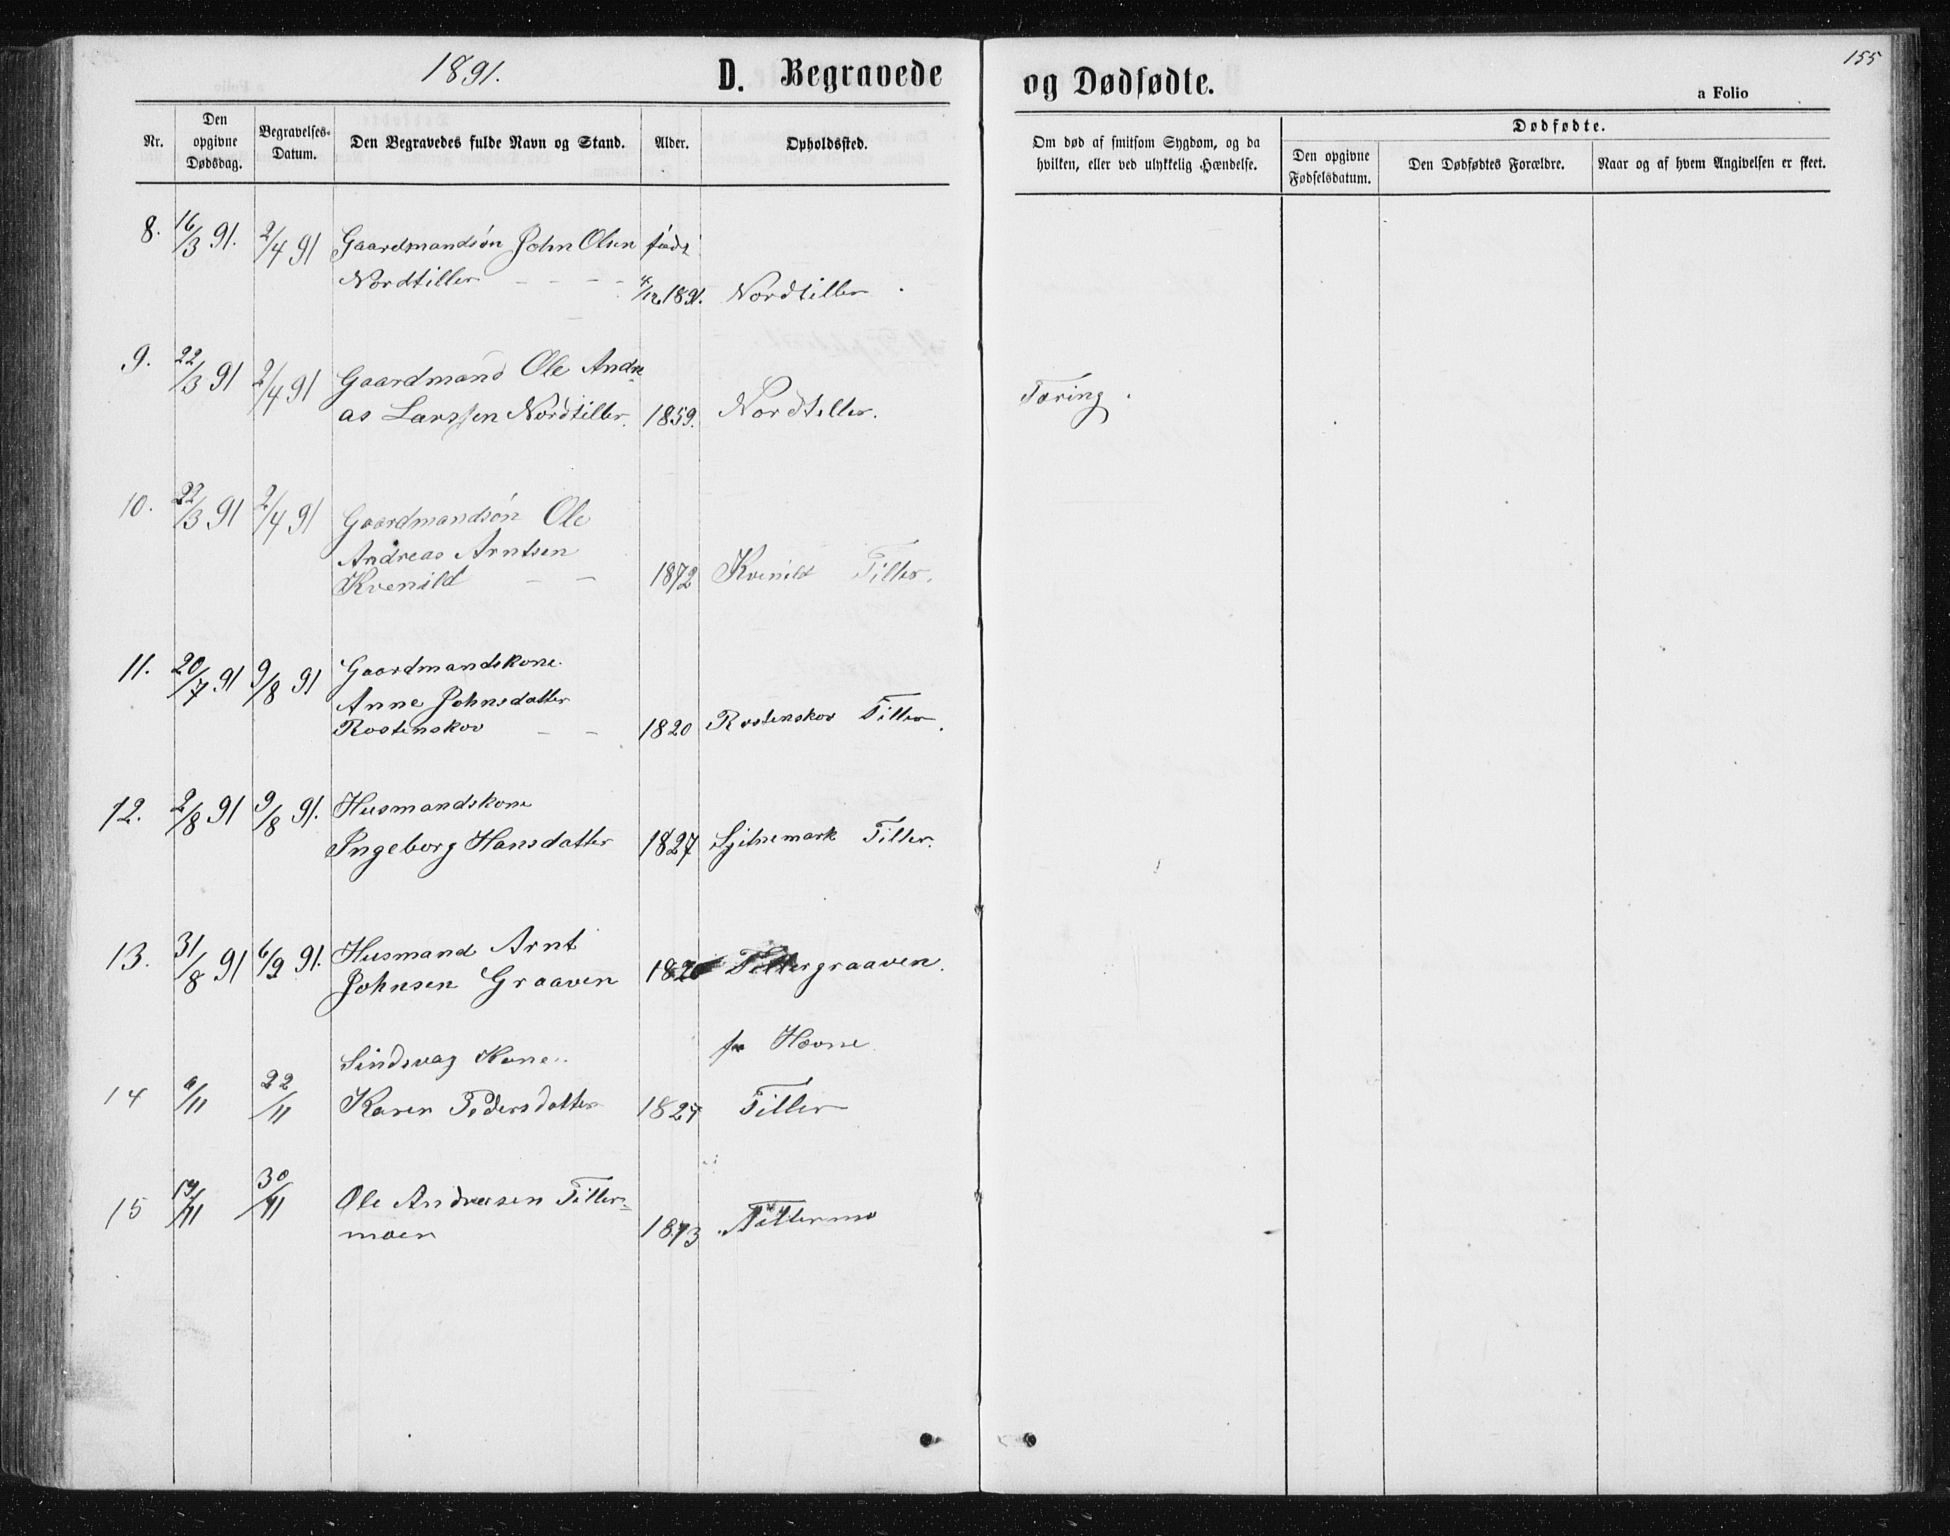 1891.
D. Begravede
og Dødfødte.
155
a Folio
Nr.
Den opgivne Dødsdag.
Begravelses-Datum.
Den Begravedes fulde Navn og Stand.
Alder.
Opholdssted.
Om død af smitsom Sygdom, og da hvilken, eller ved ulykkelig Hændelse.
Dødfødte.
Den opgivne Fødselsdatum.
Den Dødfødtes Forældre.
Naar og af hvem Angivelsen er skeet.
8. 16/3 91. 2/4 91 Gaardmandsøn John Olsen født
Nordtiller - - - - /12 1891. Nordtiller.
9. 22/3 91 2/4 91 Gaardmand Ole Andre-
as Larssen Nordtiller. 1859. Nordtiller. Tæring.
10. 22/3 91 2/4 91 Gaardmandsøn Ole
Andreas Arntsen
Kvenild - - 1872 Kvenild Tiller.
11. 20/7 91 9/8 91 Gaardmandskone.
Anne Johnsdatter
Rostenskov - - 1820 Rostenskov Tiller.
12. 2/8 91 9/8 91. Husmandskone
Ingeborg Hansdatter 1827 Sjetnemark Tiller.
13. 31/8 91 6/9 91. Husmand Arnt
Johnsen Graaven 182 Tillergraaven.
Kone. Hevne
14 6/11 22/11 Karen Pedersdatter 1827 Tiller
15 19/11 30/11 Ole Andreasen Tiller-
moen 1873 Tillermo